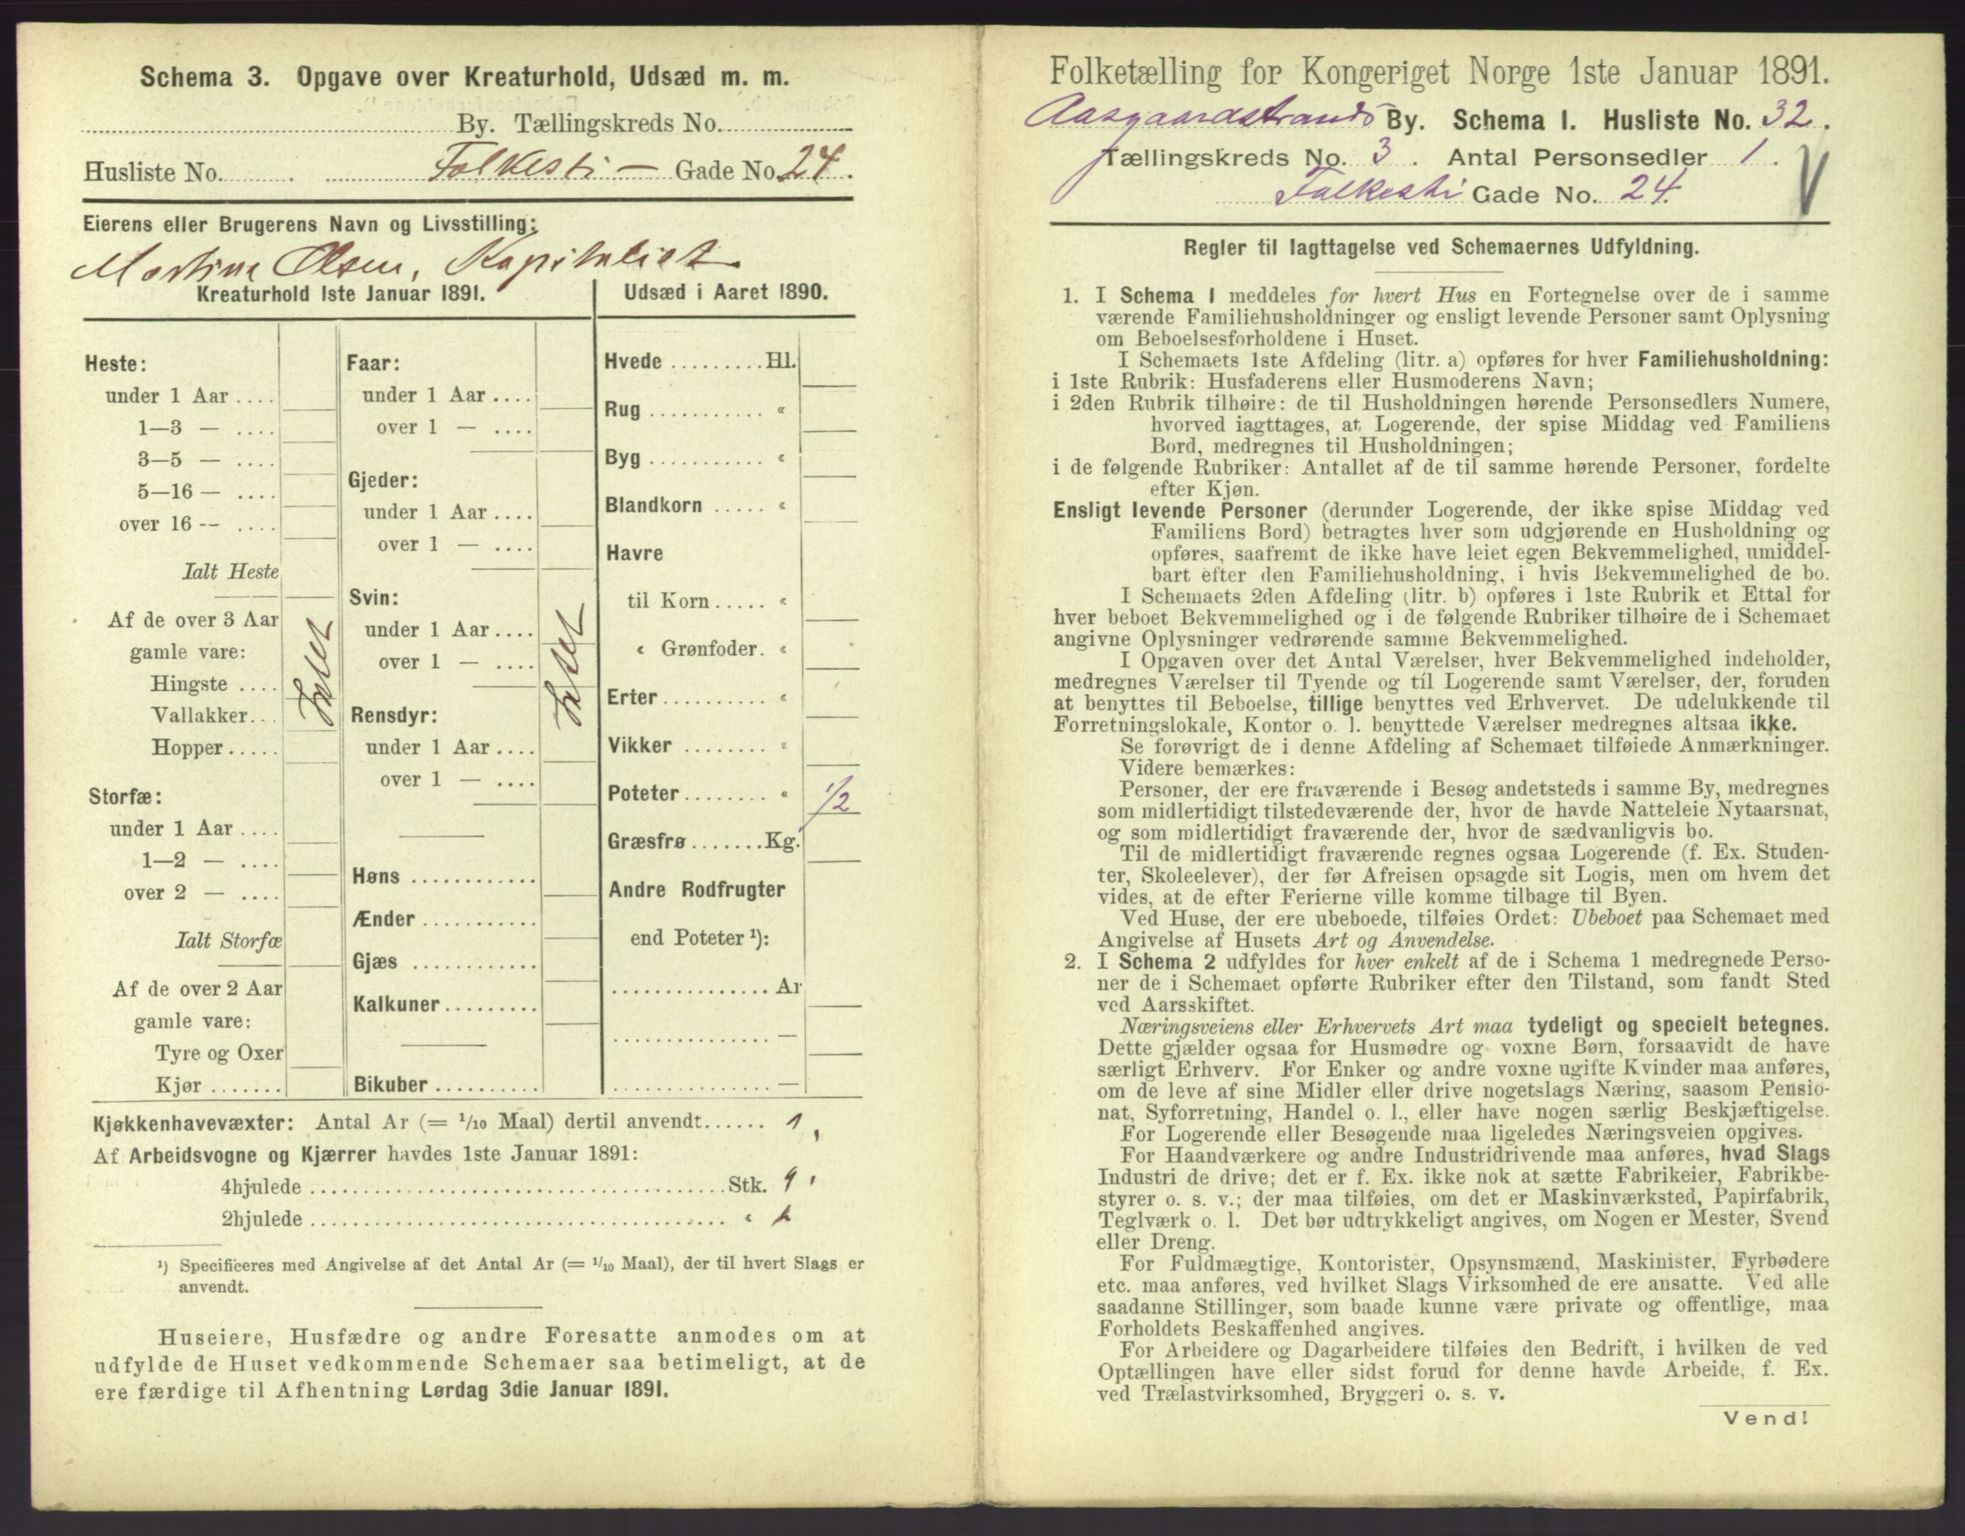 Schema 3. Opgave over Kreaturhold, Udsæd m. m.
By. Tællingskreds No.
Husliste No. Falkesti — Gade No. 24.
Eierens eller Brugerens Navn og Livsstilling:
Martine Olsen, Kapitalist
Kreaturhold 1ste Januar 1891.
Heste:
under 1 Aar ....
1—3 — ....
3—5 — ....
5—16 — ....
over 16 -- ....
Ialt Heste
Af de over 3 Aar
gamle vare:
Hingste ....
Vallakker...
Hopper.....
Storfæ:
under 1 Aar ....
1—2 — ....
over 2 — ....
Ialt Storfæ
Af de over 2 Aar
gamle vare:
Tyre og Oxer
Kjør .......
Intet
Faar:
under 1 Aar ....
over 1 — ....
Gjeder:
under 1 Aar ....
over 1 — ....
Svin:
under 1 Aar ....
over 1 — ....
Rensdyr:
under 1 Aar ....
over 1 — ....
Høns ............
Ænder ...........
Gjæs ............
Kalkuner .........
Bikuber ..........
Intet
Udsæd i Aaret 1890.
Hvede .........Hl.
Rug ........... “
Byg ........... “
Blandkorn ..... “
Havre
til Korn ..... “
“ Grønfoder. “
Erter .......... “
Vikker ........ “
Poteter ........ “ 1/2
Græsfrø .......Kg.
Andre Rodfrugter
end Poteter ¹):
............... Ar
............... —
............... —
Kjøkkenhavevæxter: Antal Ar (= 1/10 Maal) dertil anvendt...... 1,
Af Arbeidsvogne og Kjærrer havdes 1ste Januar 1891:
4hjulede ........................................Stk.
2hjulede ........................................ “
¹) Specificeres med Angivelse af det Antal Ar (= 1/10 Maal), der til hvert Slags er
anvendt.
Huseiere, Husfædre og andre Foresatte anmodes om at
udfylde de Huset vedkommende Schemaer saa betimeligt, at de
ere færdige til Afhentning Lørdag 3die Januar 1891.
Folketælling for Kongeriget Norge 1ste Januar 1891.
Aasgaardstrands By. Schema I. Husliste No. 32.
Tællingskreds No. 3. Antal Personsedler 1.
Falkesti Gade No. 24.
Regler til Iagttagelse ved Schemaernes Udfyldning.
1. I Schema 1 meddeles for hvert Hus en Fortegnelse over de i samme
værende Familiehusholdninger og ensligt levende Personer samt Oplysning
om Beboelsesforholdene i Huset.
I Schemaets 1ste Afdeling (litr. a) opføres for hver Familiehusholdning:
i 1ste Rubrik: Husfaderens eller Husmoderens Navn;
i 2den Rubrik tilhøire: de til Husholdningen hørende Personsedlers Numere,
hvorved iagttages, at Logerende, der spise Middag ved Familiens
Bord, medregnes til Husholdningen;
i de følgende Rubriker: Antallet af de til samme hørende Personer, fordelte
efter Kjøn.
Ensligt levende Personer (derunder Logerende, der ikke spise Middag ved
Familiens Bord) betragtes hver som udgjørende en Husholdning og
opføres, saafremt de ikke have leiet egen Bekvemmelighed, umiddel-
bart efter den Familiehusholdning, i hvis Bekvemmelighed de bo.
I Schemaets 2den Afdeling (litr. b) opføres i 1ste Rubrik et Ettal for
hver beboet Bekvemmelighed og i de følgende Rubriker tilhøire de i Schemaet
angivne Oplysninger vedrørende samme Bekvemmelighed.
I Opgaven over det Antal Værelser, hver Bekvemmelighed indeholder,
medregnes Værelser til Tyende og til Logerende samt Værelser, der, foruden
at benyttes til Beboelse, tillige benyttes ved Erhvervet. De udelukkende til
Forretningslokale, Kontor o. l. benyttede Værelser medregnes altsaa ikke.
Se forøvrigt de i denne Afdeling af Schemaet tilføiede Anmærkninger.
Videre bemærkes:
Personer, der ere fraværende i Besøg andetsteds i samme By, medregnes
som midlertidigt tilstedeværende der, hvor de havde Natteleie Nytaarsnat,
og som midlertidigt fraværende der, hvor de sædvanligvis bo.
Til de midlertidigt fraværende regnes ogsaa Logerende (f. Ex. Studen-
ter, Skoleelever), der før Afreisen opsagde sit Logis, men om hvem det
vides, at de efter Ferierne ville komme tilbage til Byen.
Ved Huse, der ere ubeboede, tilføies Ordet: Ubeboet paa Schemaet med
Angivelse af Husets Art og Anvendelse.
2. I Schema 2 udfyldes for hver enkelt af de i Schema 1 medregnede Perso-
ner de i Schemaet opførte Rubriker efter den Tilstand, som fandt Sted
ved Aarsskiftet.
Næringsveiens eller Erhvervets Art maa tydeligt og specielt betegnes.
Dette gjælder ogsaa for Husmødre og voxne Børn, forsaavidt de have
særligt Erhverv. For Enker og andre voxne ugifte Kvinder maa anføres,
om de leve af sine Midler eller drive nogetslags Næring, saasom Pensio-
nat, Syforretning, Handel o. l., eller have nogen særlig Beskjæftigelse.
For Logerende eller Besøgende maa ligeledes Næringsveien opgives.
For Haandværkere og andre Industridrivende maa anføres, hvad Slags
Industri de drive; det er f. Ex. ikke nok at sætte Fabrikeier, Fabrikbe-
styrer o. s. v.; der maa tilføies, om det er Maskinværksted, Papirfabrik,
Teglværk o. l. Det bør udtrykkeligt angives, om Nogen er Mester, Svend
eller Dreng.
For Fuldmægtige, Kontorister, Opsynsmænd, Maskinister, Fyrbødere
etc. maa anføres, ved hvilket Slags Virksomhed de ere ansatte. Ved alle
saadanne Stillinger, som baade kunne være private og offentlige, maa
Forholdets Beskaffenhed angives.
For Arbeidere og Dagarbeidere tilføies den Bedrift, i hvilken de ved
Optællingen have eller sidst forud for denne havde Arbeide, f. Ex.
ved Trælastvirksomhed, Bryggeri o. s. v.
Vend!